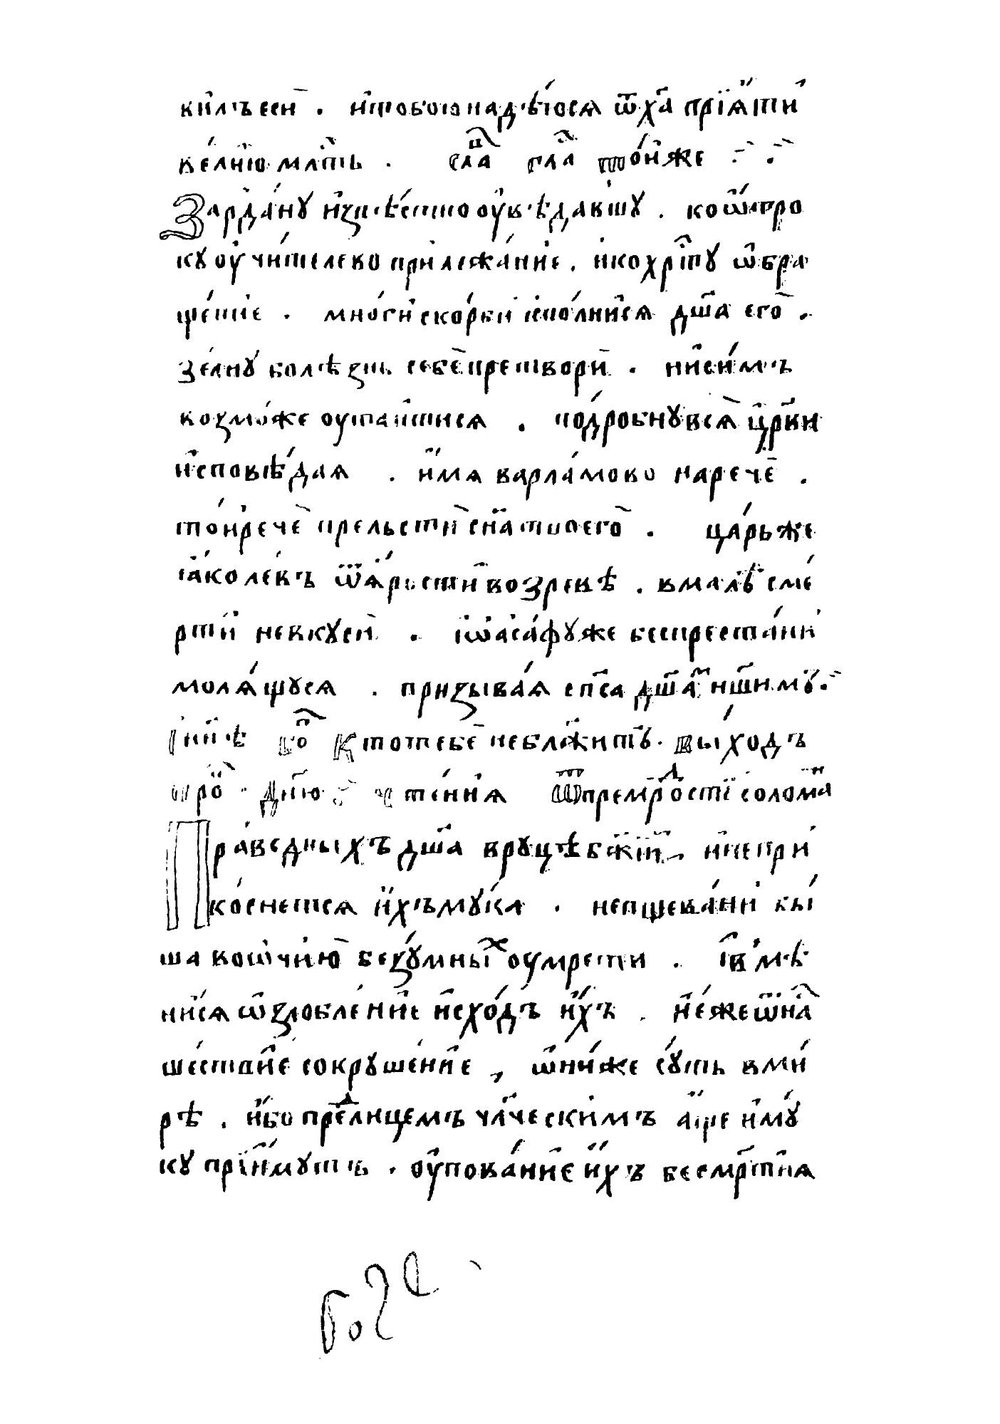 вилъ еси҆ . и҆тобою надѣ́юсѧ ѿха прїѧ́ти
ве́лїю млⷭть . сла гла то́нже
Зарда́ну и҆звѣ́стно оувѣ́давшу . ко ѿтро
ку оу҆чи́телево прилежа́нїе . и҆ко хрⷭту ѡ҆бра
ще́нїе . мно́гїѧ ско́рби и҆спо́лнисѧ дш҃а его̀ .
зе́лну болѣ́знь себѐ претвори̑ . ни си́мъ
возмо́же оутаи́тисѧ . подро́бну всѧ̑ цр҃ви
и҆сповѣ́даѧ . и҆́мѧ варла́мово нарече̑ .
то́и рече̑ прельсти̑ сн҃а твоего̀ . ца́рь же
ꙗ҆́ко ле́въ ѿ ꙗ҆́рости возревѣ̀ . вмалѣ̀ сме́
рти невкуси̑ . і҆ѡаса́фу же беспреста́ни
молѧ́щусѧ . призыва́ѧ спс҃а дш҃а́мъ на́шимъ .
ны́нѣ бо҃ Ктотебѐ неблажи́тъ . вы́ходъ
про . дн҃ю чте́нїѧ ѿ премрⷣости соломⷩа
Пра́ведныхъ дш҃а вруцѣ̀ бж҃їи , и҆не при
ко́снетсѧ и҆́хъ му́ка . непщева́ни бы́
ша во ѡ҆чи́ю безу́мныⷯ оумре́ти . і҆вмѣ
ни́сѧ ѡ҆злобле́нїе и҆схо́дъ и҆́хъ . и҆е́же ѿ на
ше́ствїе сокруше́нїе , ѡ҆ни́же су́ть вми́
рѣ . и҆́бо преⷣлицемъ чл҃ческимъ а҆́ще и҆му́
ку прїи́мутъ . оу҆пова́нїе и҆́хъ бесмр́тїѧ